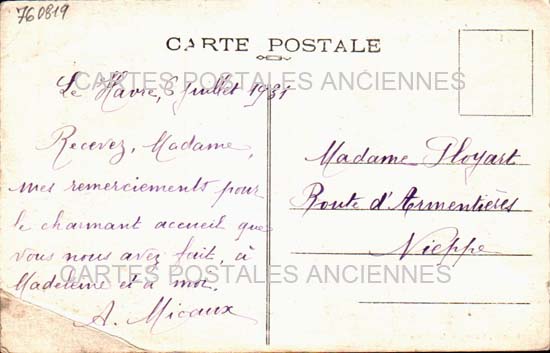 760819
CARTE POSTALE
CARTES POSTALES ANCIENNES
Le Havre, 6 Juillet 1931
Recevez, Madame,
mes remerciements pour
le charmant accueil que
vous nous avez fait, à
Madeleine et à moi.
A. Micaux
Madame Ployart
Route d'Armentières
Nieppe
CARTES POSTALES ANCIENNES